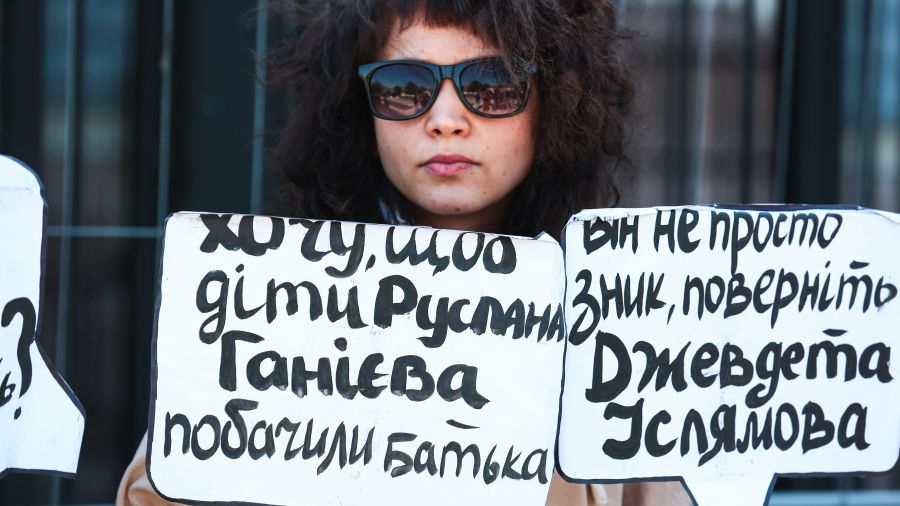 ь?
хочу, щоб
діти Руслана
Ганієва
побачили Батька
він не просто
зник, поверніть
Джевдета
Іслямова